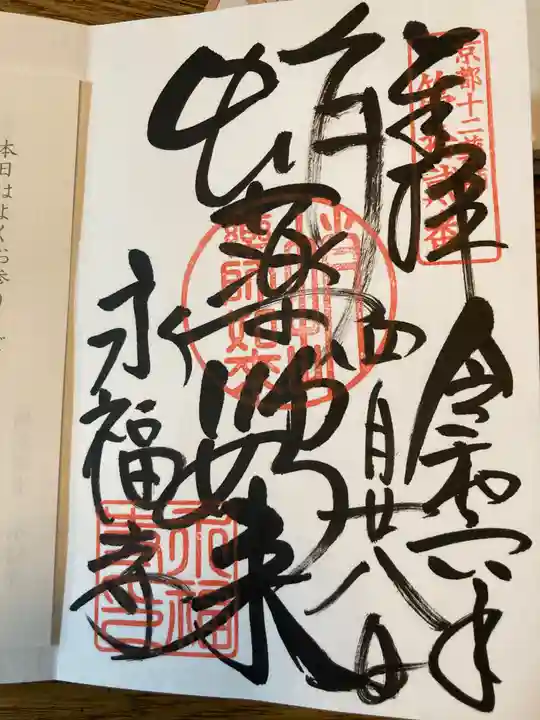 奉拝
令和六年
四月廿八日
蛸薬師如来
永福寺
京都十二薬師
第拾弐番
薬師如来
永福寺印
本日はよくお参り